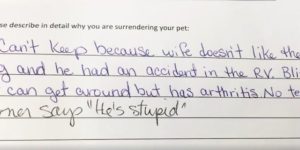 se describe in detail why you are surrendering your pet:
Can't keep because wife doesn't like the
g and he had an accident in the R.V. Bli
can get around but has arthritis. No te
ner says "He's stupid"